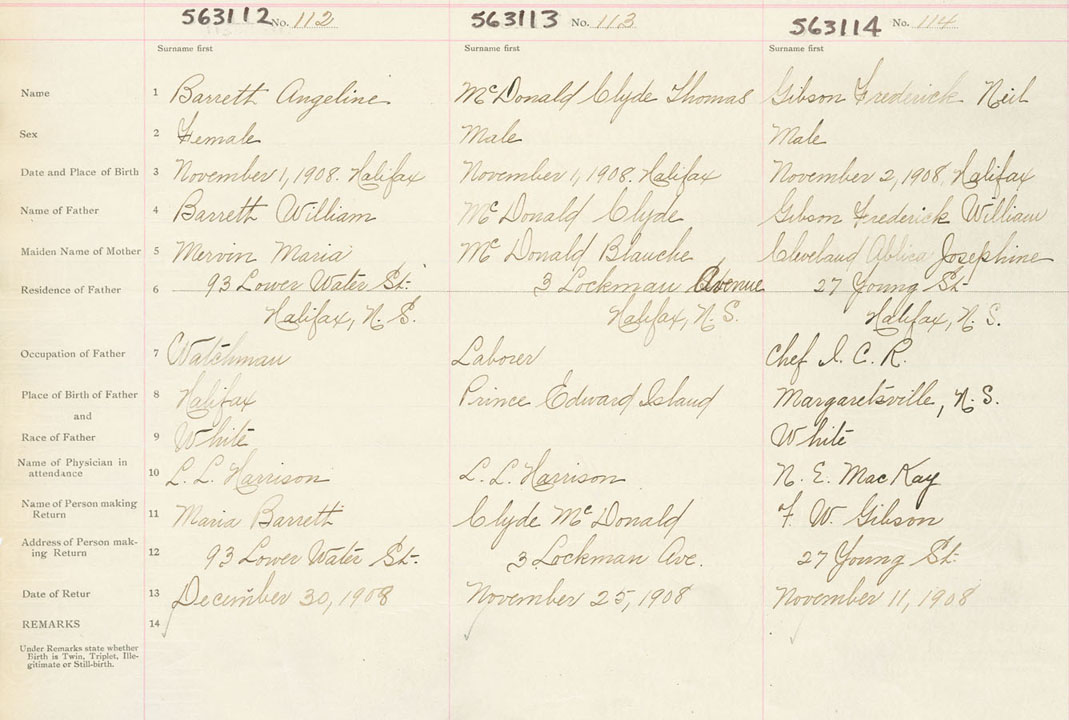 563112 No. 112 563113 No. 113 563114 No. 114
Surname first Surname first Surname first
Name 1 Barrett Angeline McDonald Clyde Thomas Gibson Frederick Neil
Sex 2 Female Male Male
Date and Place of Birth 3 November 1, 1908. Halifax November 1, 1908. Halifax November 2, 1908, Halifax
Name of Father 4 Barrett William McDonald Clyde Gibson Frederick William
Maiden Name of Mother 5 Mervin Maria McDonald Blanche Cleveland Josephine
Residence of Father 6 93 Lower Water St. 3 Lockman Avenue 27 Young St.
Halifax, N. S. Halifax, N. S. Halifax, N. S.
Occupation of Father 7 Watchman Laborer Chef I. C. R.
Place of Birth of Father 8 Halifax Prince Edward Island Margaretsville, N. S.
and
Race of Father 9 White White
Name of Physician in
attendance 10 L. L. Harrison L. L. Harrison N. E. MacKay
Name of Person making
Return 11 Maria Barrett Clyde McDonald F. W. Gibson
Address of Person mak-
ing Return 12 93 Lower Water St. 3 Lockman Ave. 27 Young St.
Date of Retur 13 December 30, 1908 November 25, 1908 November 11, 1908
REMARKS 14
Under Remarks state whether
Birth is Twin, Triplet, Ille-
gitimate or Still-birth.